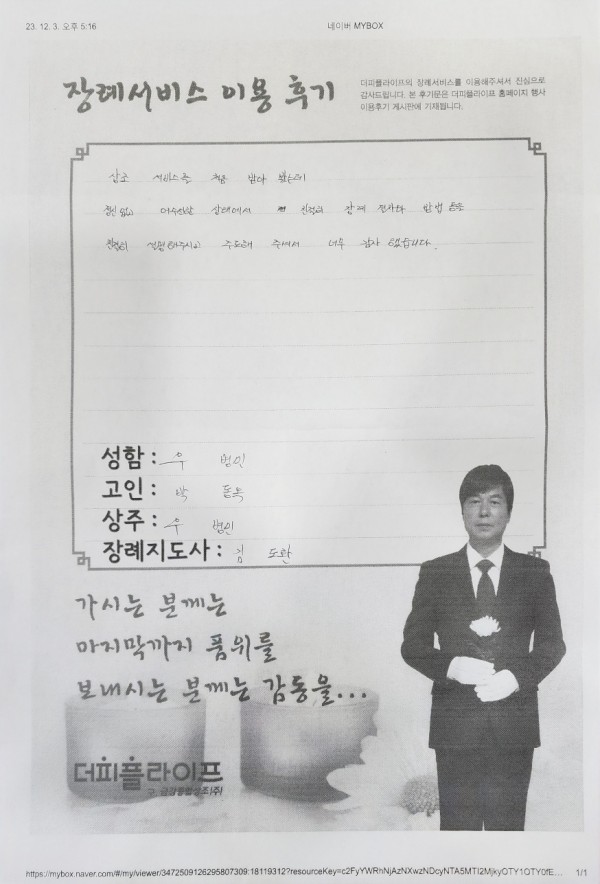 23. 12. 3. 오후 5:16
네이버 MYBOX
장례서비스 이용 후기
더피플라이프의 장례서비스를 이용해주셔서 진심으로
감사드립니다. 본 후기문은 더피플라이프 홈페이지 행사
이용후기 게시판에 기재됩니다.
상조 서비스를 처음 받아 봤는데
정신 없고 어수선한 상태에서 장례 절차와 방법 등을
친절히 설명해주시고 주도해 주셔서 너무 감사했습니다.
성함 : 우 범인
고인 : 박
상주 : 우 범인
장례지도사 : 김 도완
가시는 분께는
마지막까지 품위를
보내시는 분께는 감동을...
더피플라이프
구. 금강종합상조(주)
https://mybox.naver.com/#/my/viewer/3472509126295807309:18119312?resourceKey=c2FyYWRhNjAzNXwzNDcyNTA5MTI2MjkyOTY1OTY0fE...
1/1